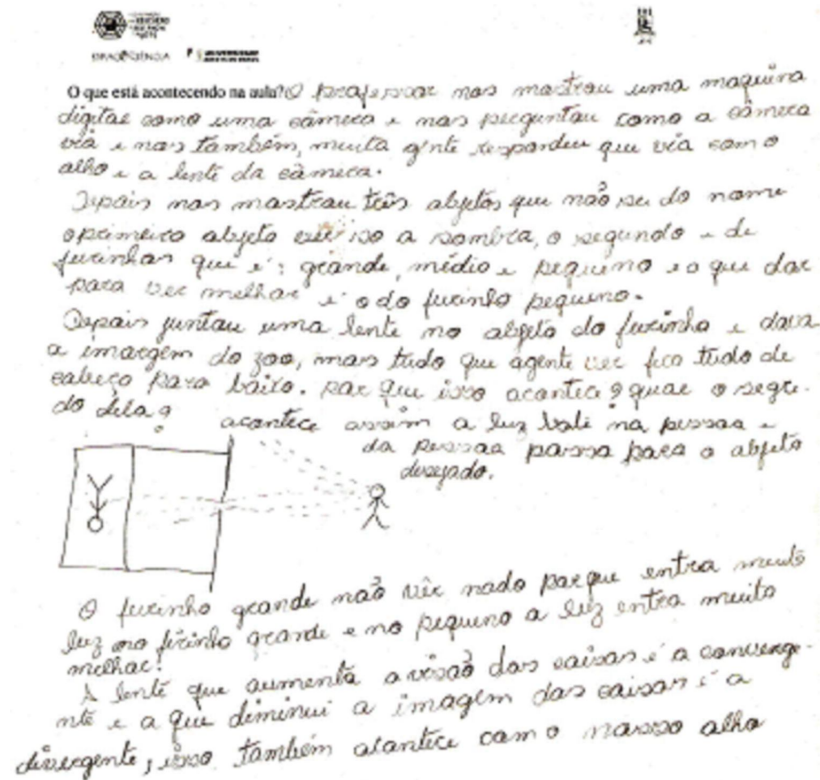 O que está acontecendo na aula? O professor nos mostrou uma maquina
digital como uma câmera e nos perguntou como a câmera
via e nos também, muita gente respondeu que via com o
olho e a lente da câmera.
Depois nos mostrou três objetos que não sei do nome
o primeiro objeto isso a sombra, o segundo e de
furinhos que é: grande, médio e pequeno e o que dar
para ver melhor é o do furinho pequeno.
Depois juntou uma lente no objeto do furinho e dava
a imargem do zoo, mas tudo que agente ver fico tudo de
cabeça para baixo. por que isso acontece? qual o segre-
do dela?
acontece assim a luz bate na pessoa e
da pessoa passa para o objeto
desejado.
O furinho grande não vêr nada porque entra muito
luz no firinho grande e no pequeno a luz entra muito
melhor!
A lente que aumenta a visão das coisas é a converge-
nte e a que diminui a imagem das coisas é a
divergente, isso também acontece com o nosso olho